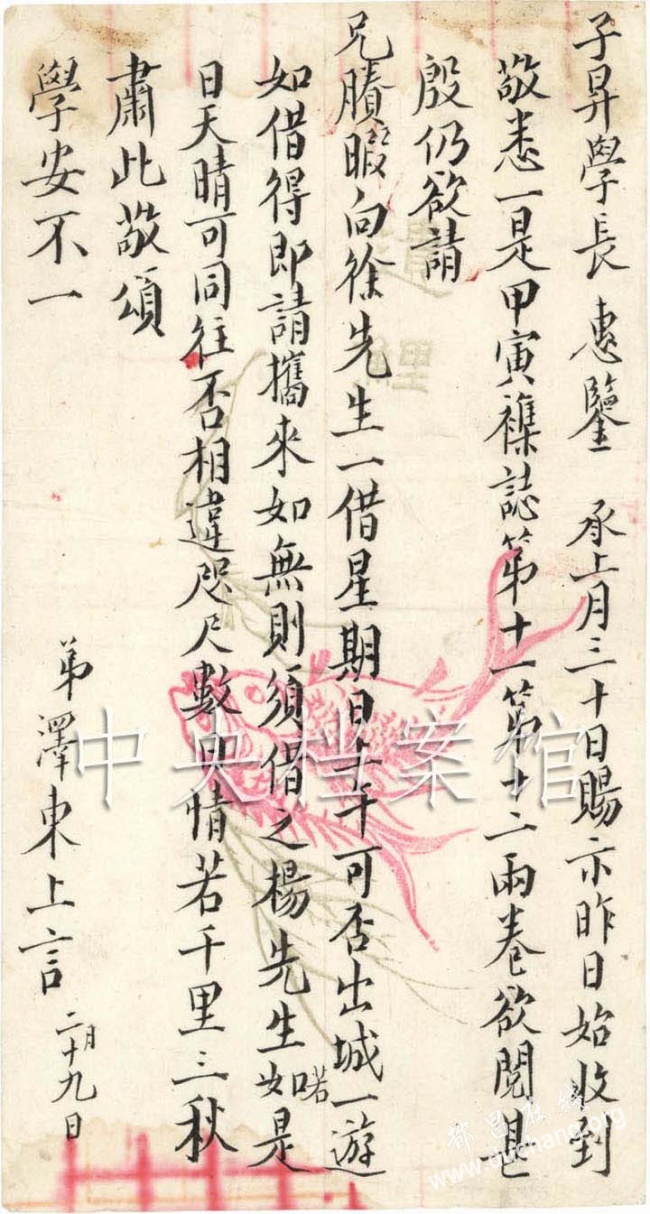 子昇學長 惠鑒 承上月三十日賜示昨日始收到
敬悉一是甲寅襍誌第十一第十二兩卷欲閱甚
殷仍欲請
兄牘暇向徐先生一借星期日上午可否出城一遊
如借得即請攜來如無則須借之楊先生如若是
日天晴可同往否相違咫尺數日情若千里三秋
肅此敬頌
學安不一
弟澤東上言 二月十九日
中央档案馆
都昌在线